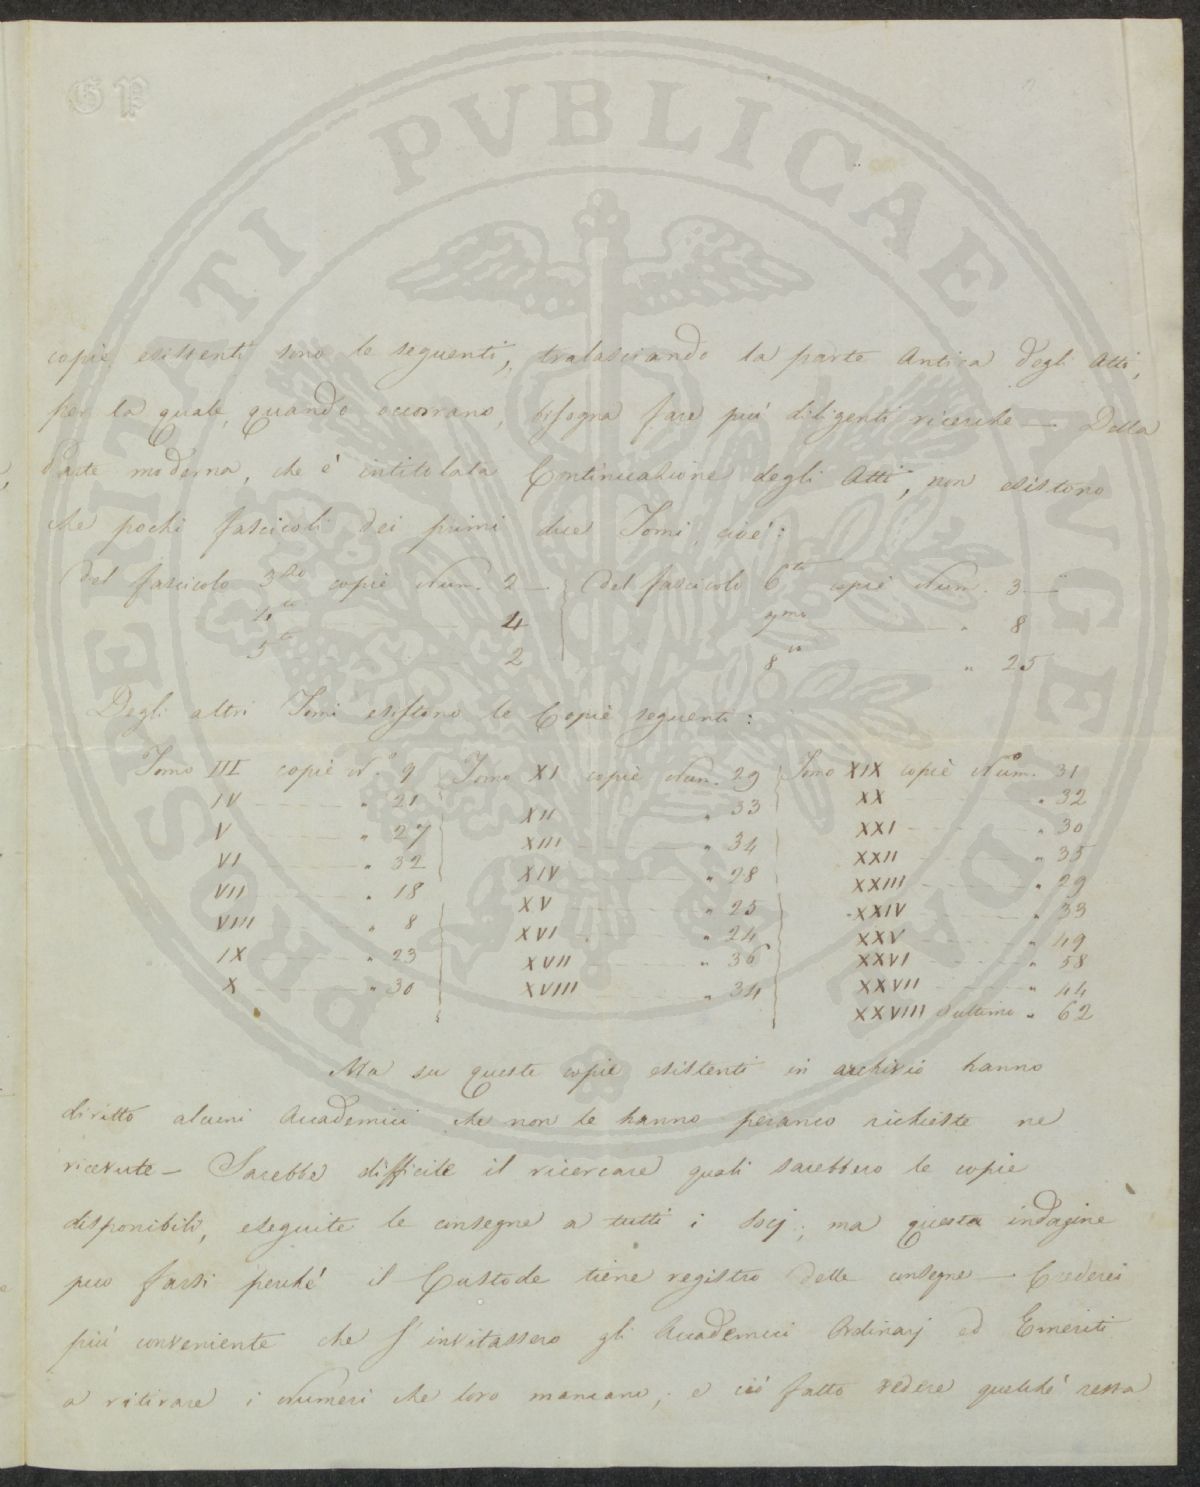 GP
PROSPERITATI PVBLICAE AVGENDAE
copie esistenti sono le seguenti, tralasciando la parte Antica degli Atti,
per la quale, quando occorrano, bisogna fare più diligenti ricerche — Della
Parte moderna, che è intitolata Continuazione degli Atti, non esistono
che pochi fascicoli dei primi due Tomi, cioè:
Del fascicolo 3zo copie Num. 2 — Del fascicolo 6to copie Num. 3 —
4to 4 7mo " 8
5to 2 8vo " 25
Degli altri Tomi esistono le Copie seguenti:
Tomo III copie N.o 9 Tomo XI copie Num. 29 Tomo XIX copie Num. 31
IV " 21 XII " 33 XX " 32
V " 27 XIII " 34 XXI " 30
VI " 32 XIV " 28 XXII " 35
VII " 18 XV " 25 XXIII " 29
VIII " 8 XVI " 24 XXIV " 33
IX " 23 XVII " 36 XXV " 49
X " 30 XVIII " 34 XXVI " 58
XXVII " 44
XXVIII ed ultimo " 62
Ma su queste copie esistenti in archivio hanno
diritto alcuni Accademici che non le hanno peranco richieste ne
ricevute — Sarebbe difficile il ricercare quali sarebbero le copie
disponibili, eseguite le consegne a tutti i Socj; ma questa indagine
può farsi perchè il Custode tiene registro delle consegne — Crederei
più conveniente che s'invitassero gli Accademici Ordinarj ed Emeriti
a ritirare i Numeri che loro mancano; e ciò fatto vedere quelchè resta